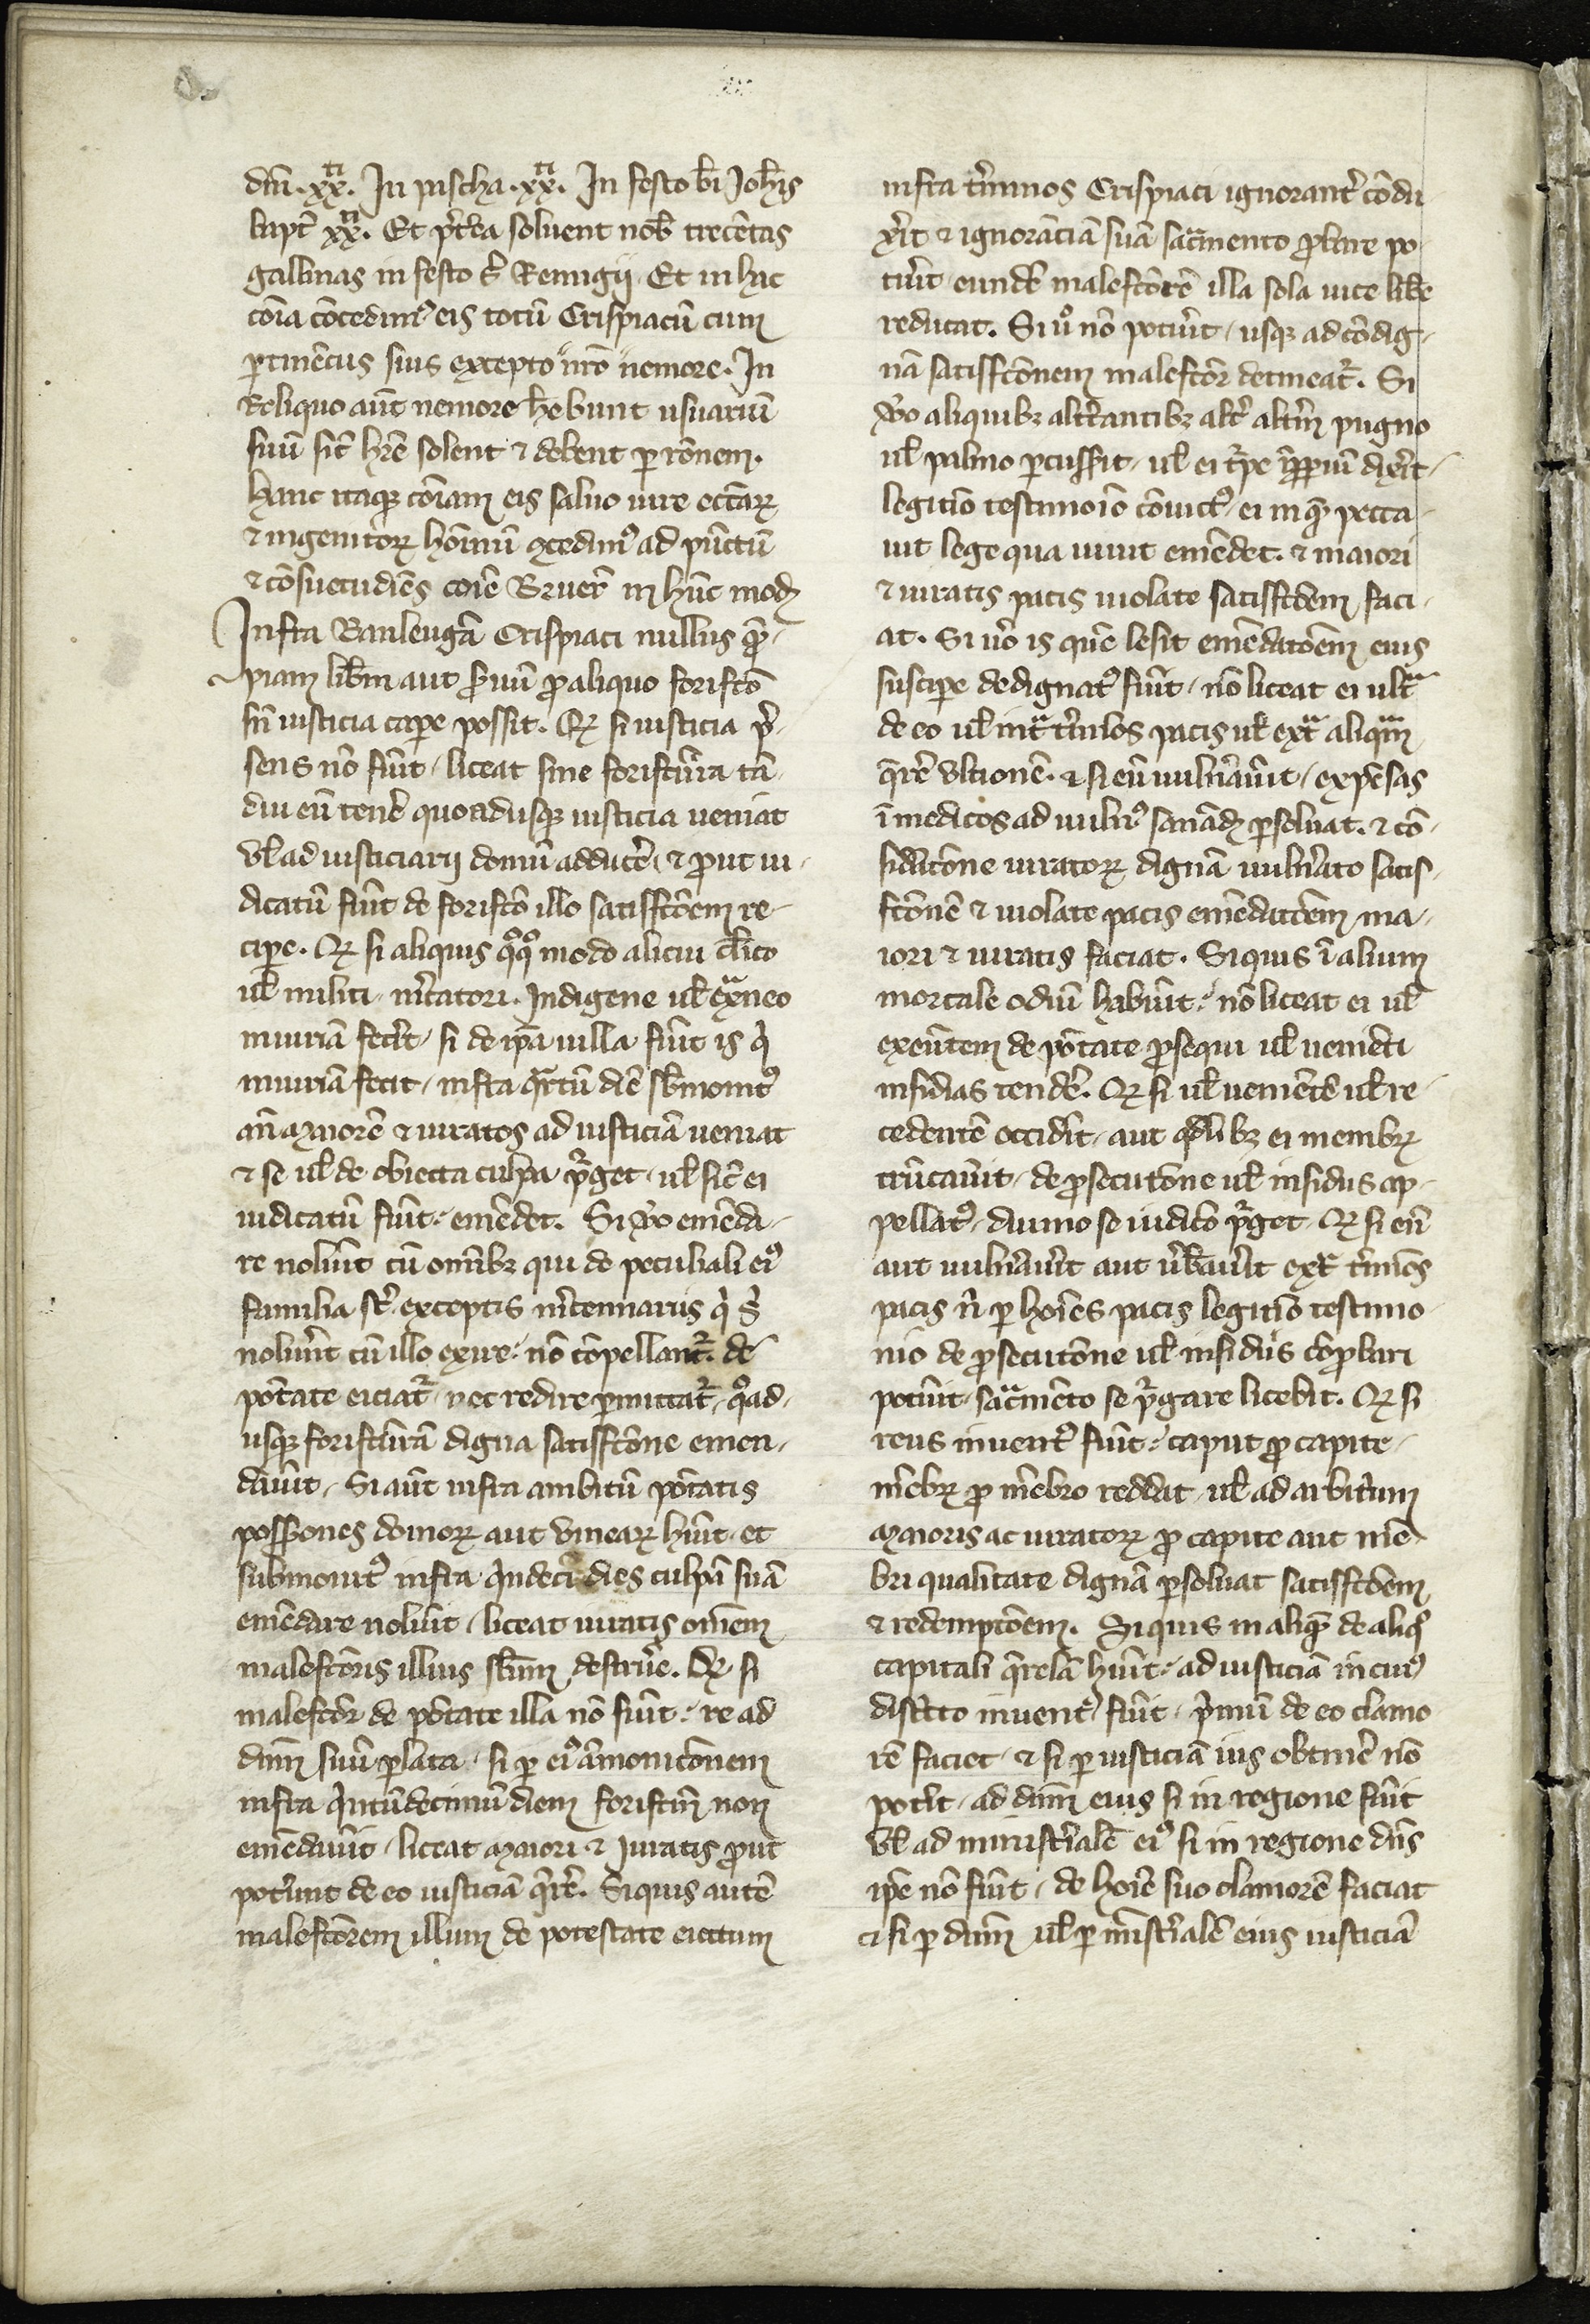 dnī .xxti. In pascha .xxti. In festo bī Ioh̄is
bapt̄ xxti. Et p̄t̄ea soluent nob̄ trecētas
gallinas in festo s̄ Remigij. Et in hac
cōia cōcedimꝰ eis totū Crispiacū cum
ꝑtinēciis suis excepto nr̄o nemore. In
Reliquo aūt nemore h̄ebunt usuariū
suū sic̄ h̄re solent ⁊ debent per rōnem.
hanc itaqꝫ cōiam eis saluo iure eccl̄aꝝ
⁊ ingenitoꝝ hoīnū ꝯcedimꝰ ad pūctū
⁊ cōsuetudīes cōie Bruer̄ in hūc modū
Infra Banleugā Crispiaci nullus q̄m
piam lib̄m aut s̄uū ꝓ aliquo forisfc̄o
sn̄ iusticia cape possit. Qꝫ si iusticia p̄
sens nō fūit / liceat sine forisfc̄ura tā
diu eū tene͛ quoadusqꝫ iusticia ueniat
ul̄ ad iusticiarij domū adduce͛ ⁊ ꝓut iu
dicatū fūit de forisfc̄o illo satisfc̄oem re
cipe. Qꝫ si aliquis qͦqͦ modo alicui cl̄ico
ul̄ militi / m̄catori. Indigene ul̄ ext̄neo
iniuriā fec̄it / si de ip̄a uilla fūit is qi
iniuriā fecit / infra q̄rtū diē sb̄monitꝰ
an̄ maiorē ⁊ iuratos ad iusticiā ueniat
⁊ se ul̄ de obiecta culpa p̄get / ul̄ sic̄ ei
iudicatū fūit / emēdet. Si ūo emēda
re nolūit cū om̄ibꝫ qui de peculiali eiꝰ
familia st̄ exceptis m̄cennariis qi s̄i
nolūint cū illo exire / nō cōpellant̄. de
potate eiciat̄ / nec redire ꝑmittat̄ / qͦad
usqꝫ forisfc̄urā digna satisfc̄one emen
dauit / Si aūt infra ambitū potatis
poss̄iones domoꝝ aut vineaꝝ hūit / et
submonitꝰ infra qindecī dies culpā suā
emēdare nolūit / liceat iuratis om̄em
malefc̄oris illius sb̄am destrue͛. Qꝫ si
malefc̄or de potate illa nō fūit / re ad
dnm̄ suū ꝑlata / si ꝑ eiꝰ āmonic̄onem
infra qintūdecimū diem forisfc̄m non
emēdauit / liceat maiori ⁊ Iuratis ꝓut
potūnt de eo iusticiā q̄re͛. Siquis autē
malefc̄orem illum de potestate eiectum
infra t̄minos Crispiaci ignorant̄ cōdu
x̄it ⁊ ignorāciā suā sac̄mento ꝓbare po
tūit eundē malefc̄orē illa sola uice lib̄e
reducat. Si uͦ nō potūit / usqꝫ ad cōdig
nā satisfc̄onem malefc̄or detineat̄. Si
ūo aliquibꝫ alt̄cantibꝫ alt̄ alt̄m pugno
ul̄ palmo ꝑcussit / ul̄ ei t̄pe īpp̄iū dix̄it /
legitīo testimoīo cōuictꝰ / ei in q̄m pecca
uit lege qua uiuit emēdet. ⁊ maiori
⁊ iuratis pacis uiolate satisfc̄oem faci
at. Si uͦo is quē lesit emēdatoēm eius
suscipe dedignatꝰ fūit / nō liceat ei ult̄
de eo ul̄ int̄ t̄minos pacis ul̄ ext̄ aliq̄m
q̄rē vltionē. ⁊ si eū uuln̄auit / expēsas
ī medicos ad uulnꝰ sanādū ꝑsoluat. ⁊ cō
sid̄ac̄one iuratoꝝ dignā uuln̄ato satis
fc̄onē ⁊ uiolate pacis emēdac̄oem ma
iori ⁊ iuratis faciat. Siquis ī alium
mortale odiū habūit / nō liceat ei ul̄
exeūtem de potate ꝓsequi ul̄ ueniēti
insidias tende͛. Qꝫ si ul̄ ueniētē ul̄ re
cedentē occid̄it / aut qd̄libꝫ ei membꝝ
trūcauit / de ꝓsecutōne ul̄ insidiis ap
pellatꝰ / diuino se iudic̄o p̄get. Qꝫ si eū
aut uuln̄auit aut ūb̄auit ext̄ t̄minos
pacis n̄ ꝑ hoīes pacis legitīo testimo
nio de ꝓsecutōne ul̄ insidiis cōꝓbari
potūit / sac̄mēto se p̄gare licebit. Qꝫ si
reus inuentꝰ fūit / caput ꝓ capite /
mēbꝝ ꝓ mēbro reddat / ul̄ ad arbit̄ium
Maioris ac iuratoꝝ ꝓ capite aut mē
bri qualitate dignā ꝑsoluat satisfc̄oem
⁊ redemptōem. Siquis in aliq̄m de aliqͦ
capitali q̄relā hūit / ad iusticiā in cuiꝰ
dist̄cto inuentꝰ fūit / p̄mū de eo clamo
rē faciet / ⁊ si ꝑ iusticiā ius obtine͛ nō
pot̄it / ad dnm̄ eius si in regione fūit
Vl̄ ad minist̄ialē eiꝰ si in regione dn̄s
ip̄e nō fūit / de hoīe suo clamorē faciat
et si ꝑ dnm̄ ul̄ ꝑ minst̄ialē eius iusticiā